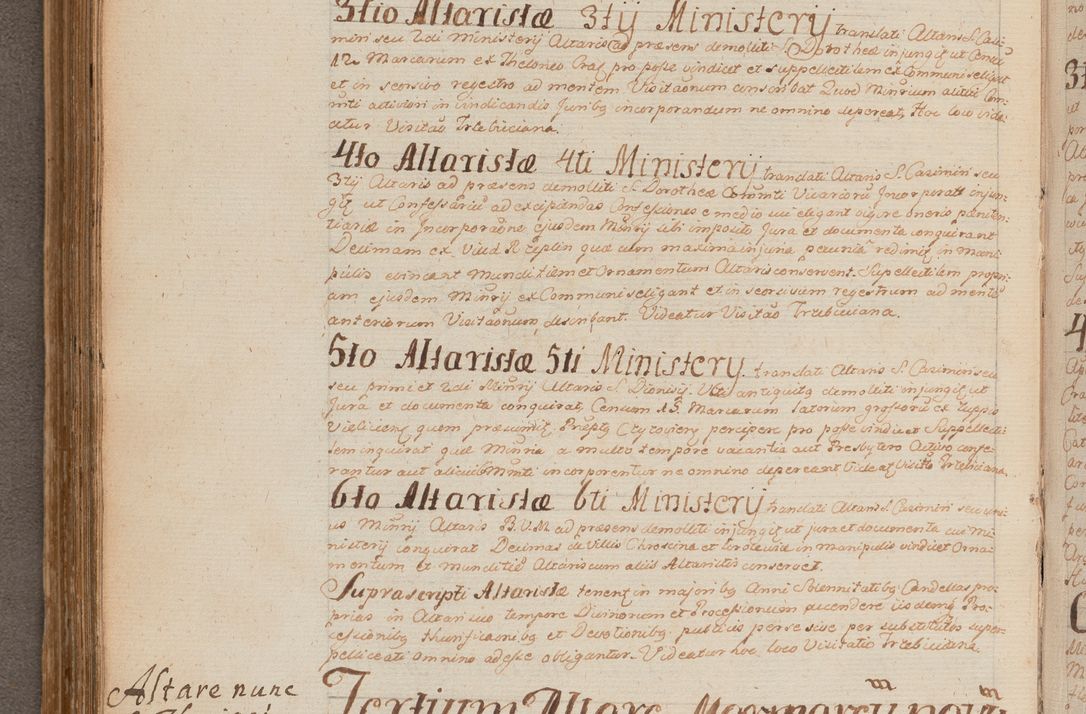 3tio Altaristæ 3tij Ministerij translati Altaris S. Casi-
miri seu 2di Ministerij Altaris ad præsens demoliti S. Dorotheæ injungiť ut Censu
12 Marcarum ex Theloneo Crac pro posse vindicet et suppellectilem ex Communi seligat
et in seorsivo regestro ad mentem Visitaonum conscribat Quod Minrium alicui Com-
muti activiori in Vindicandis Juribg incorporandum ne omnino depereat, Hoc loco vide-
atur Visitão Trzebiciana.
4to Altaristæ 4ti Ministerij translati Altaris S. Casimiri seu
3tij Altaris ad præsens demoliti S. Dorotheæ Commti Vicariorũ Incorporati injun-
giť ut Confessariũ ad excipiendas Confessiones e medio sui elegant vigore oneris pæniten-
tiariæ in Incorporãone ejusdem Minrij sibi imposito Jura et documenta conquirant
Decimam ex Villa Rzeplin quæ cum maxima injuria pecuniâ redimiť in mani-
pulis evincant Munditiem et Ornamentum Altaris conservent. Supellectilem propri-
am ejusdem Minrij ex Communi seligant et in seorsivum regestrum ad mentẽ
anteriorum Visitaonum, describant. Videatur Visitão Trzebiciana.
5to Altaristæ 5ti Ministerij translati Altaris S. Casimiri seu
seu primi et 2di Minrij Altaris S. Dionisij antiquitg demoliti injungiť ut
Jura et documenta conquirat, Censum 15 Marcarum latorum grossorũ ex Zuppis
Vieliciens quem præsumiť Præptg percipere pro posse vindicet Suppellecti-
lem inquirat quæ Minria a multo tempore vacantia aut Presbytero Activo confe-
rantur aut alicui Commti incorporentur ne omnino depereant Videať Visitão Trzebiciana.
6to Altaristæ 6ti Ministerij translati Altaris S. Casimiri seu uni-
us Minrij Altaris B.V.M. ad præsens demoliti injungiť ut jura et documenta sui Mi-
nisterij conquirat Decimas de Villis Chroscina et in manipulis vindicet Orna-
mentum et munditiẽ Altaris cum aliis Altaristis conservet.
Suprascripti Altaristæ tenenť in majoribg Anni Solemnitatibg Candellas pro-
prias in Altari suo tempore Divinorum et Processionum accendere iisdemq Pro-
cessionibg thurificaonibg et Devotionibg publicis per se sive per substitutos super-
pelliceati omnino adesse obligantur. Videatur hoc loco Visitatio Trzebiciana.
Altare nunc
Tertium Altare